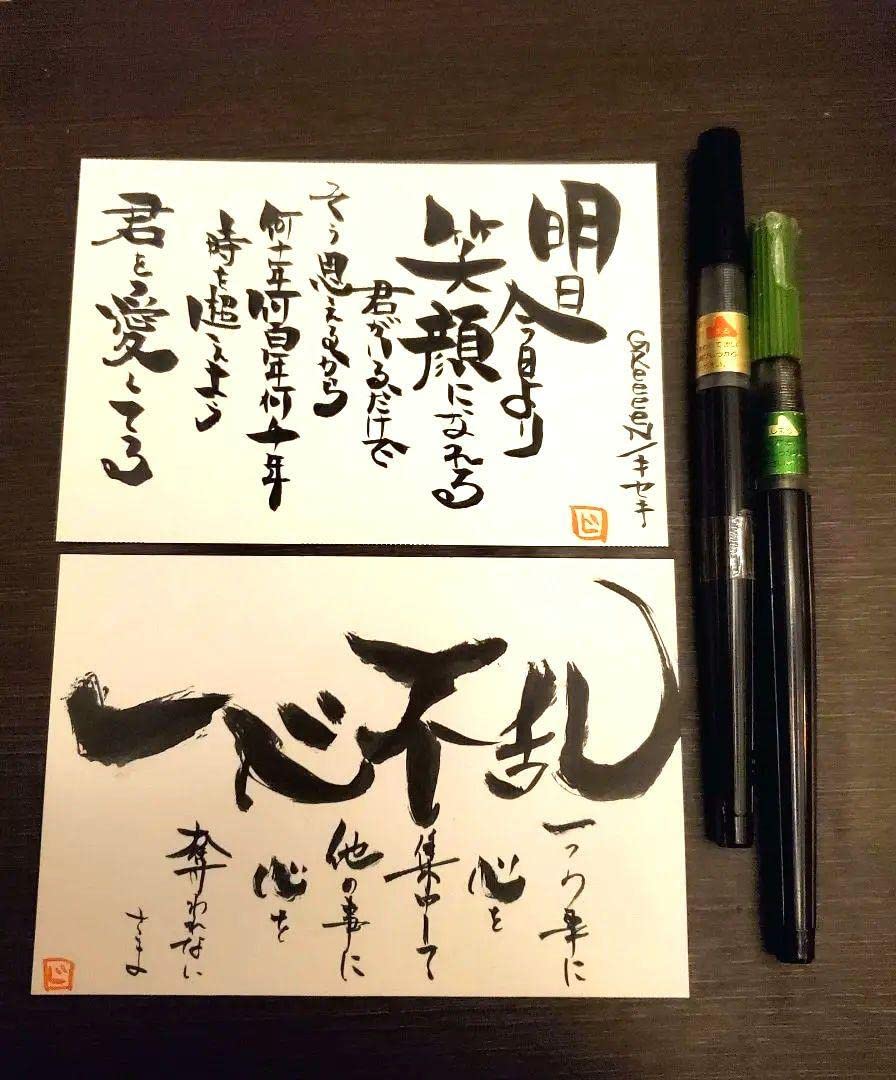 GReeeeN/キセキ
明日今日より
笑顔になれる
君がいるだけで
そう思えるから
何十年何百年何千年
時を超えよう
君を愛してる
一心不乱
一つの事に
心を
集中して
他の事に
心を
奪われない
さま